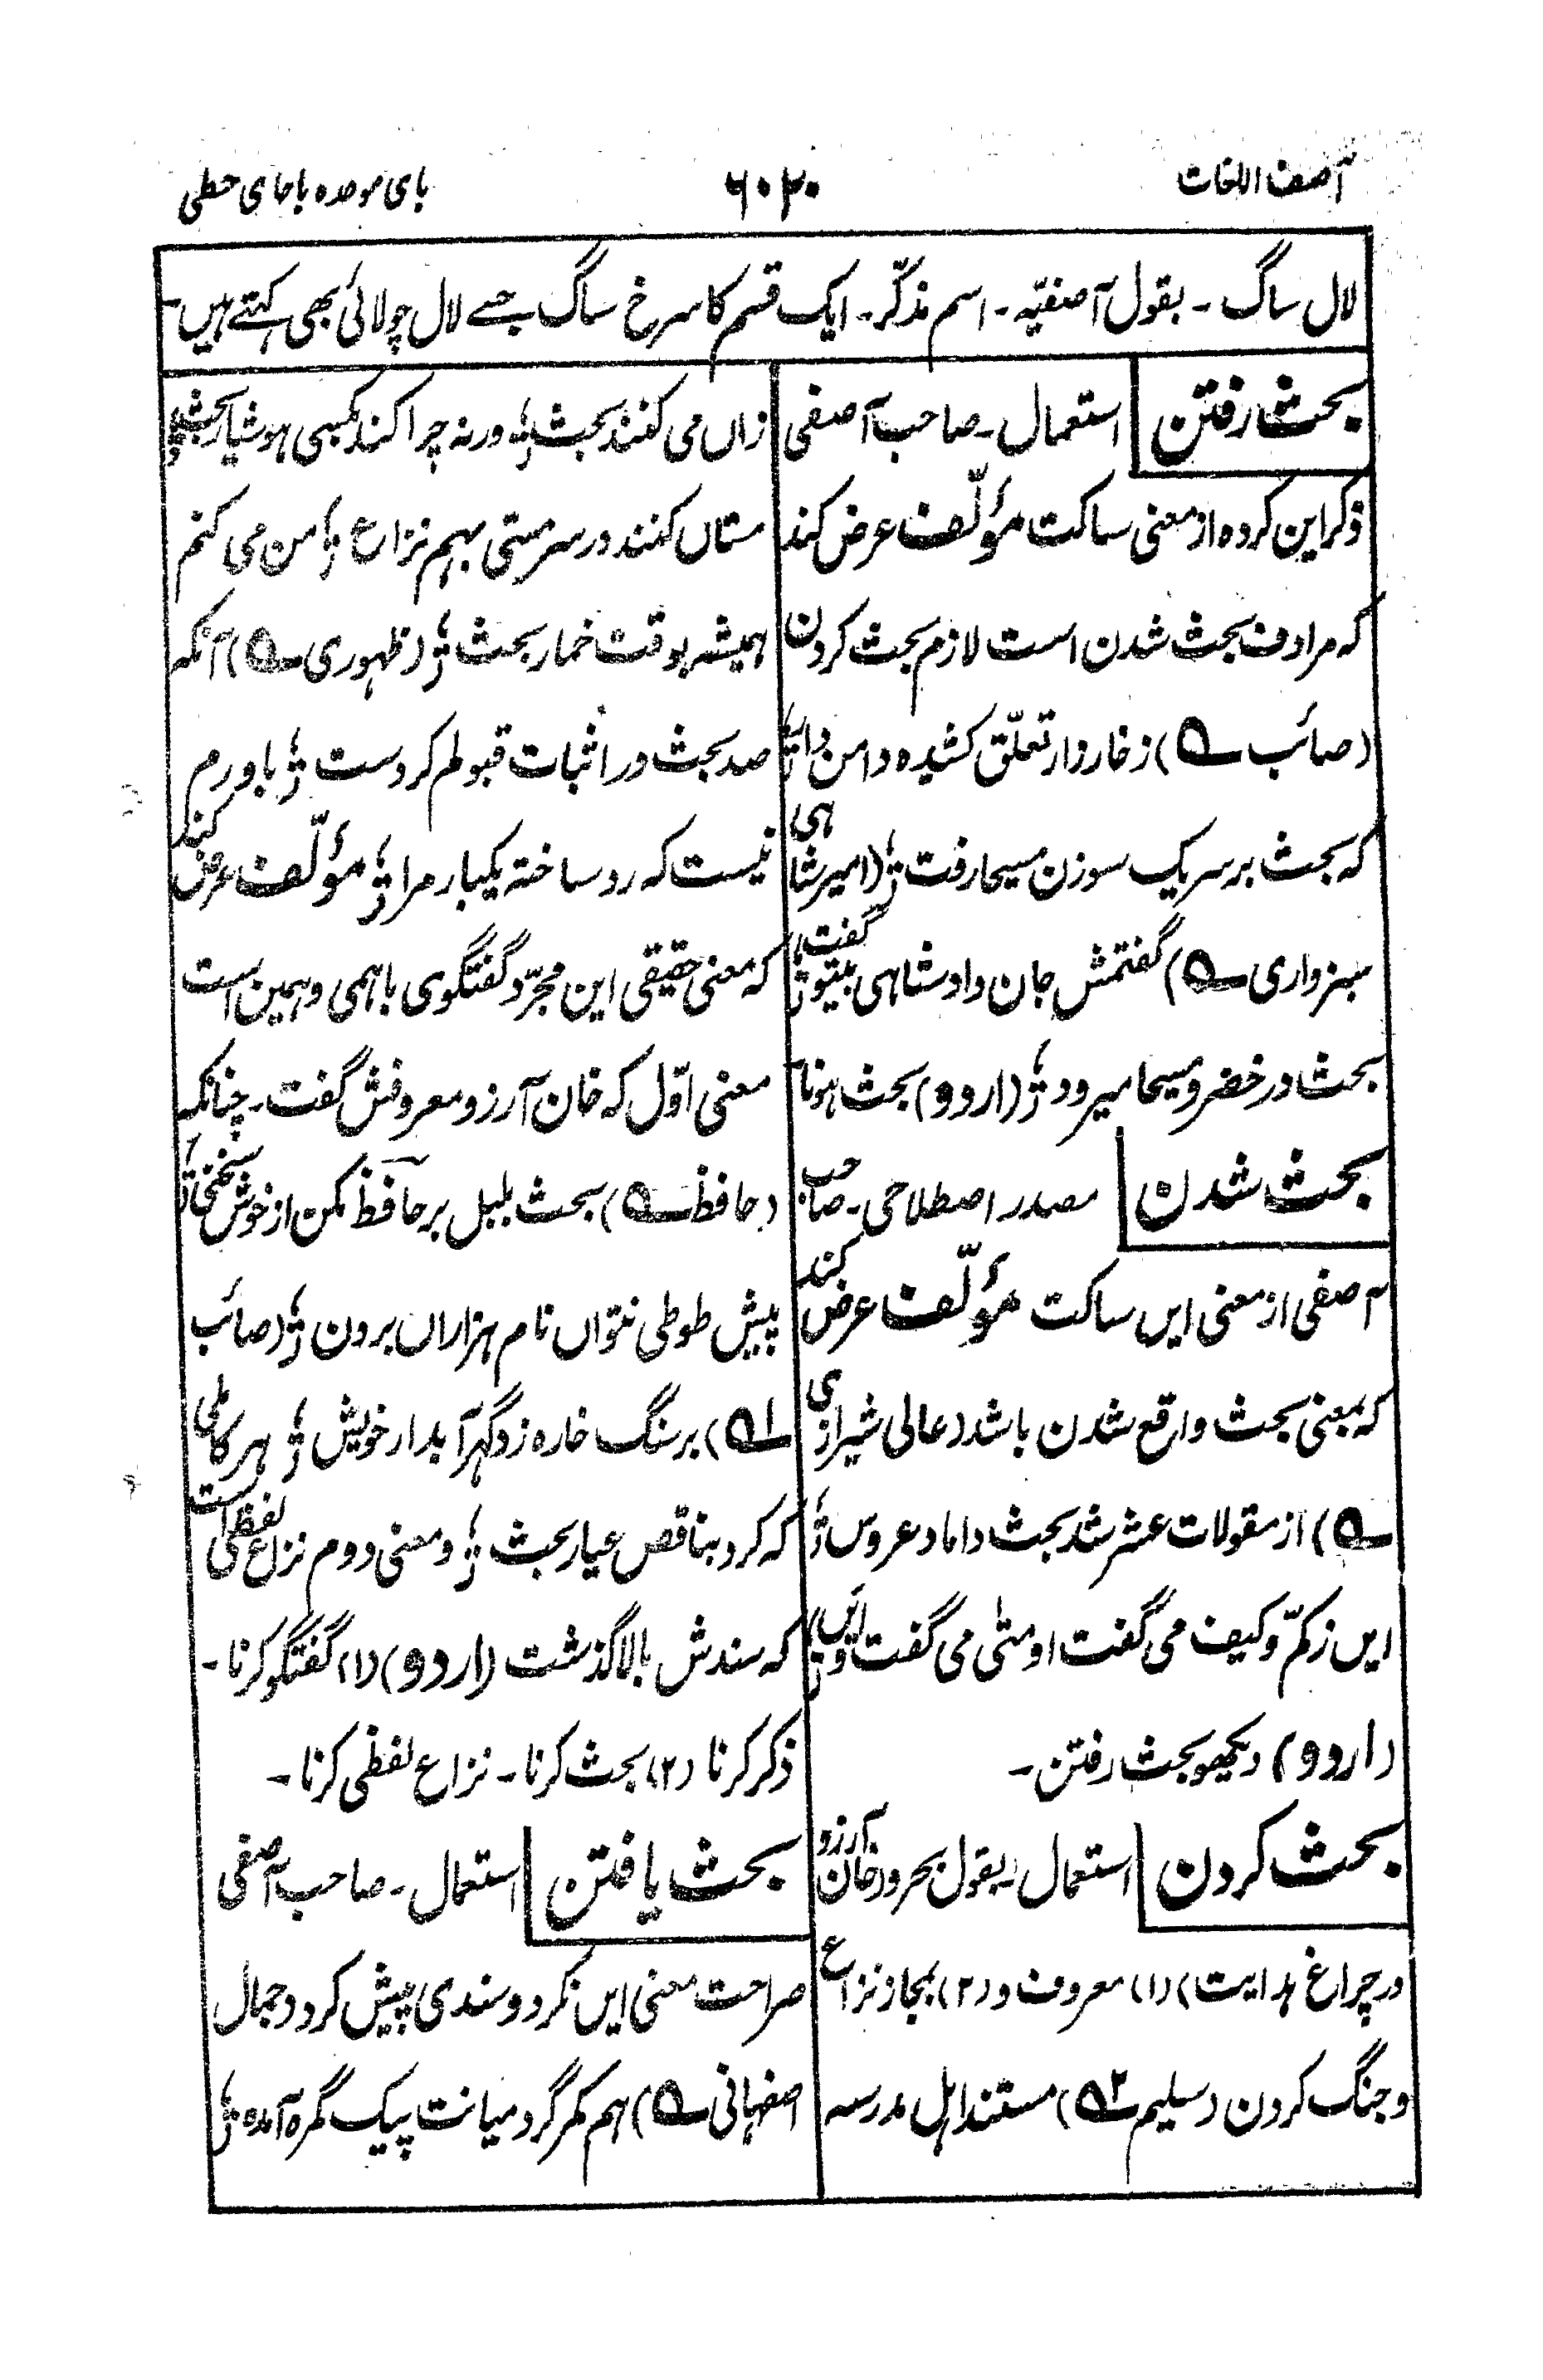 آصف اللغات
۶۰۲۰
بای موحده باحای حطی
لال ساگ ۔ بقول آصفیّہ ۔ اسم مذکّر ۔ ایک قسم کا سرخ ساگ جسے لال چولائی بھی کہتے ہیں ۔
بحث رفتن استعمال ۔ صاحب آصفی
ذکر این کرده از معنی ساکت مؤلّف عرض کند
که مرادف بحث شدن است لازم بحث کردن
(صائب ؎) ز خار وار تعلّق کشیده دامن
که بحث بر سر یک سوزن مسیحا رفت ؛ (امیر شاہی
سبزواری ؎) گفتمش جان داد شاهی گفت
بحث در خضر و مسیحا میرود ؛ (اردو) بحث ہونا ۔
بحث شدن مصدر اصطلاحی ۔ صاحب
آصفی از معنی ایں ساکت مؤلّف عرض کند
که بمعنی بحث واقع شدن باشد (عالی شیرازی
؎) از مقولات عشر شد بحث داماد عروس ؛
ایں ز کمّ و کیف می گفت او متٰی می گفت و ایں ؛
(اردو) دیکھو بحث رفتن ۔
بحث کردن استعمال ۔ بقول بحر و (خان آرزو
در چراغ ہدایت) (۱) معروف و (۲) بمجاز نزاع
و جنگ کردن (سلیم ؎۲) مستند اہل مدرسہ
زاں می کنند بحث ؛ ورنہ چرا کند بکسی ہوشیار بحث
مستاں کنند در سر مستی بہم نزاع ؛ من می کنم
ہمیشہ بوقت خمار بحث ؛ (ظہوری ؎) آنکہ
صد بحث در اثبات قبولم کردست ؛ باورم
نیست کہ رد ساختہ یکبار مرا ؛ مؤلّف عرض کند
که معنی حقیقی این مجرّد گفتگوی باہمی و ہمین است
معنی اوّل کہ خان آرزو معروفش گفت ۔ چنانکہ
(حافظ ؎) بحث بلبل بر حافظ مکن از خوش سخنی ؛
پیش طوطی نتواں نام ہزاراں بردن ؛ (صائب
؎۱) بر سنگ خاره زد گہر آبدار خویش ؛ ہر کاملی
کہ کرد بناقص عیار بحث ؛ و معنی دوم نزاع لفظی است
کہ سندش بالا گذشت (اردو) (۱) گفتگو کرنا ۔
ذکر کرنا (۲) بحث کرنا ۔ نزاع لفظی کرنا ۔
بحث یافتن استعمال ۔ صاحب آصفی
صراحت معنی ایں نکرد و سندی پیش کرد (جمال
اصفہانی ؎) ہم کمر گرد میانت پیک گمره آمده ؛